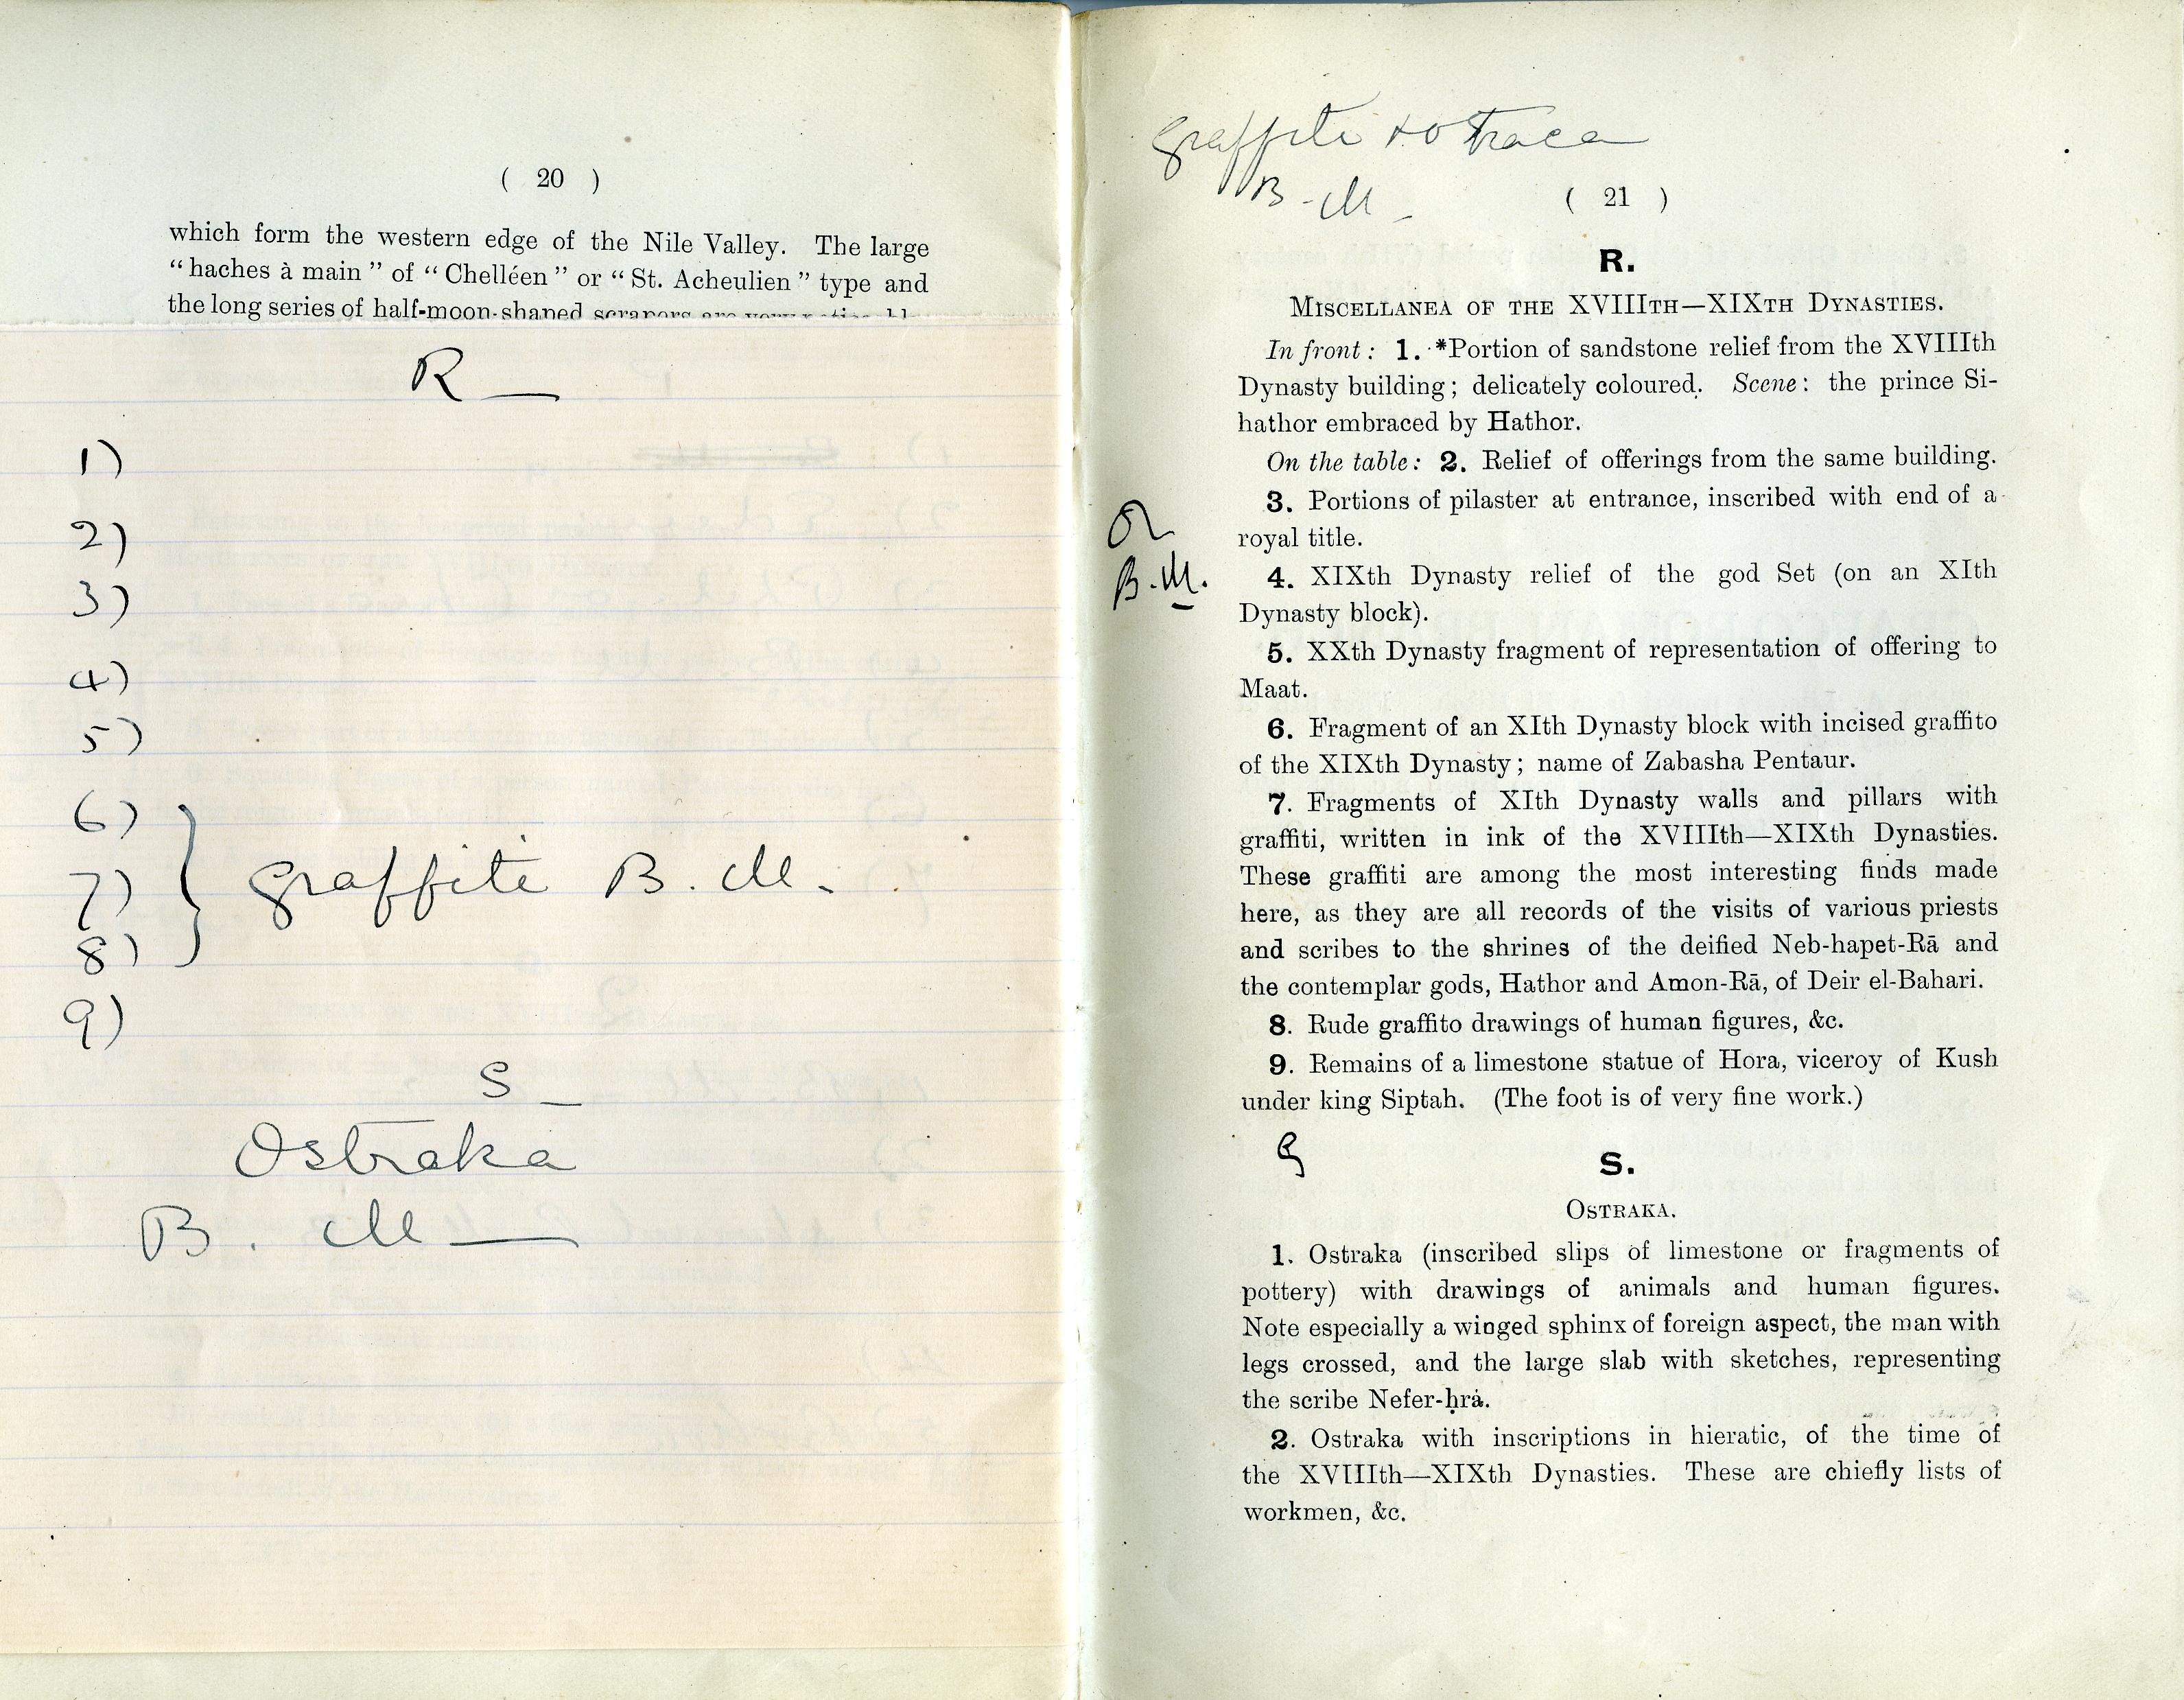 ( 20 )
which form the western edge of the Nile Valley. The large
“haches à main” of “Chelléen” or “St. Acheulien” type and
the long series of half-moon-shaped scrapers are very
R —
1)
2)
3)
4)
5)
6)
7) graffite B. M.
8)
9)
S —
Ostraka
B. M —
graffite + ostraca
B. M —
( 21 )
R.
MISCELLANEA OF THE XVIIITH—XIXTH DYNASTIES.
In front : 1. *Portion of sandstone relief from the XVIIIth
Dynasty building ; delicately coloured. Scene : the prince Si-
hathor embraced by Hathor.
On the table : 2. Relief of offerings from the same building.
3. Portions of pilaster at entrance, inscribed with end of a
royal title.
B.M.
4. XIXth Dynasty relief of the god Set (on an XIth
Dynasty block).
5. XXth Dynasty fragment of representation of offering to
Maat.
6. Fragment of an XIth Dynasty block with incised graffito
of the XIXth Dynasty ; name of Zabasha Pentaur.
7. Fragments of XIth Dynasty walls and pillars with
graffiti, written in ink of the XVIIIth—XIXth Dynasties.
These graffiti are among the most interesting finds made
here, as they are all records of the visits of various priests
and scribes to the shrines of the deified Neb-hapet-Rā and
the contemplar gods, Hathor and Amon-Rā, of Deir el-Bahari.
8. Rude graffito drawings of human figures, &c.
9. Remains of a limestone statue of Hora, viceroy of Kush
under king Siptah. (The foot is of very fine work.)
S.
OSTRAKA.
1. Ostraka (inscribed slips of limestone or fragments of
pottery) with drawings of animals and human figures.
Note especially a winged sphinx of foreign aspect, the man with
legs crossed, and the large slab with sketches, representing
the scribe Nefer-ḥrȧ.
2. Ostraka with inscriptions in hieratic, of the time of
the XVIIIth—XIXth Dynasties. These are chiefly lists of
workmen, &c.